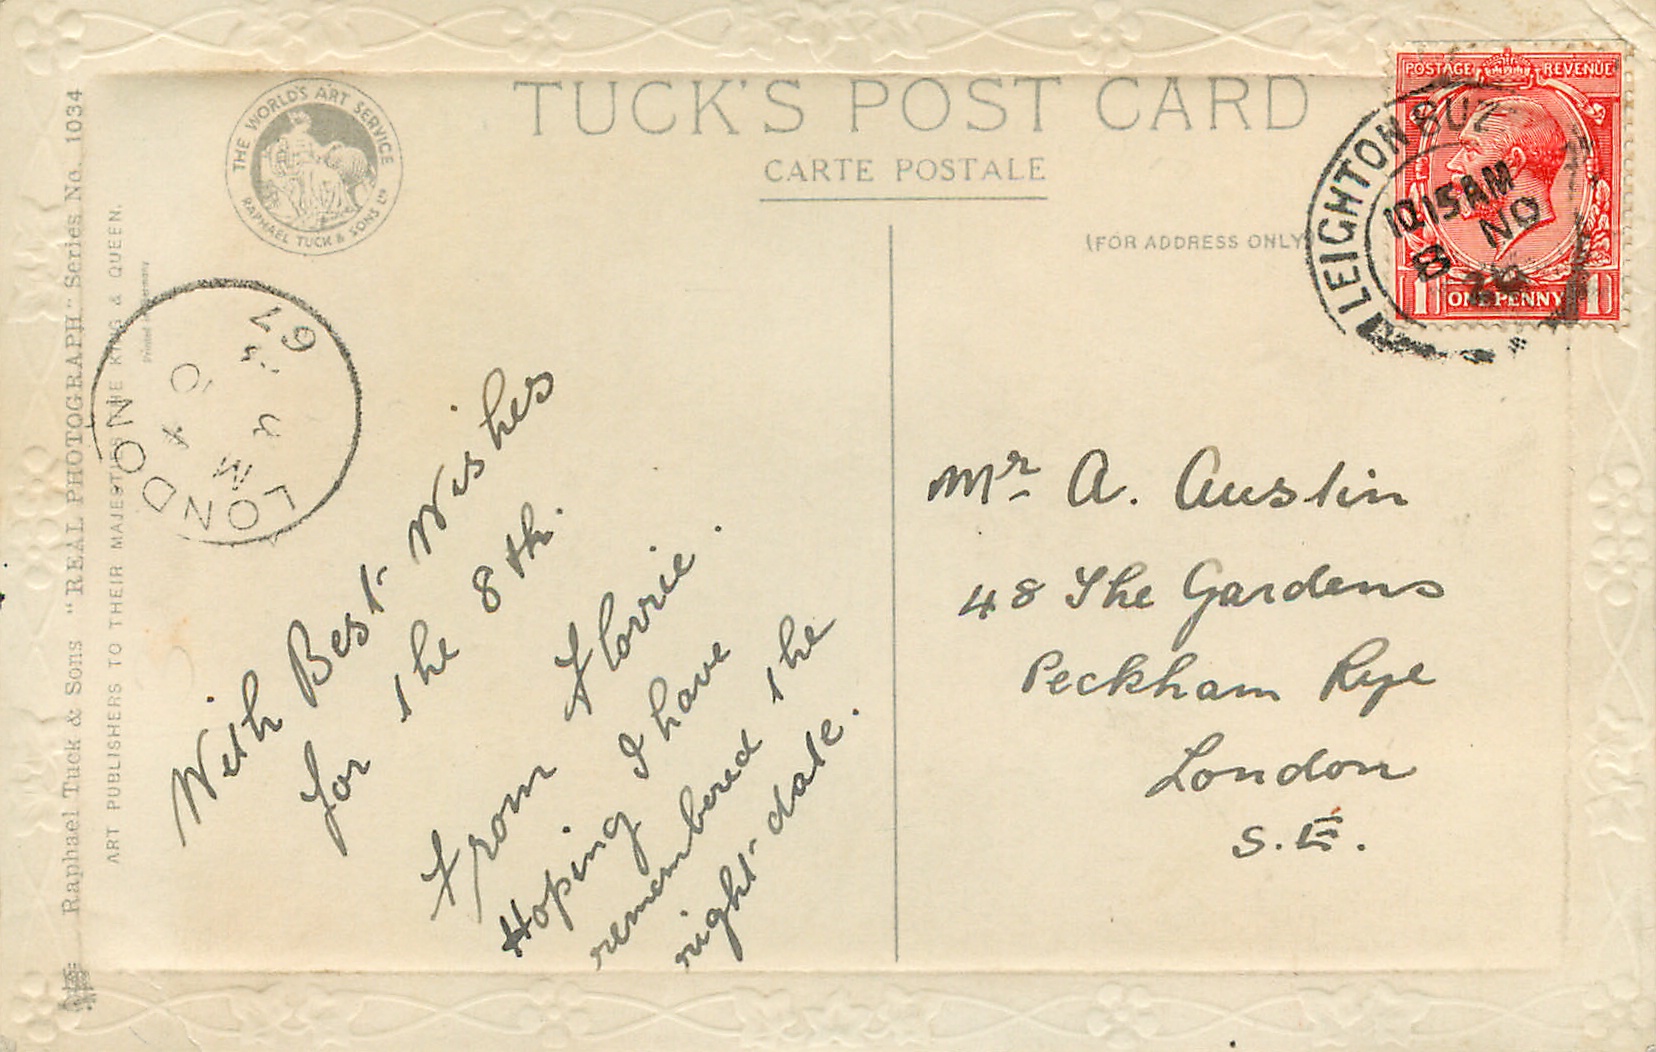 TUCK'S POST CARD
CARTE POSTALE
(FOR ADDRESS ONLY)
THE WORLD'S ART SERVICE
RAPHAEL TUCK & SONS LTD
Raphael Tuck & Sons "REAL PHOTOGRAPH" Series No. 1034
ART PUBLISHERS TO THEIR MAJESTIES THE KING & QUEEN.
Printed
POSTAGE REVENUE
1 ONE PENNY 1
LEIGHTON BUZ
10 15 AM
8 NO
26
LONDON
67
With Best Wishes
for the 8th.
From Florrie.
Hoping I have
remembered the
right date.
Mr. A. Austin
48 The Gardens
Peckham Rye
London
S.E.